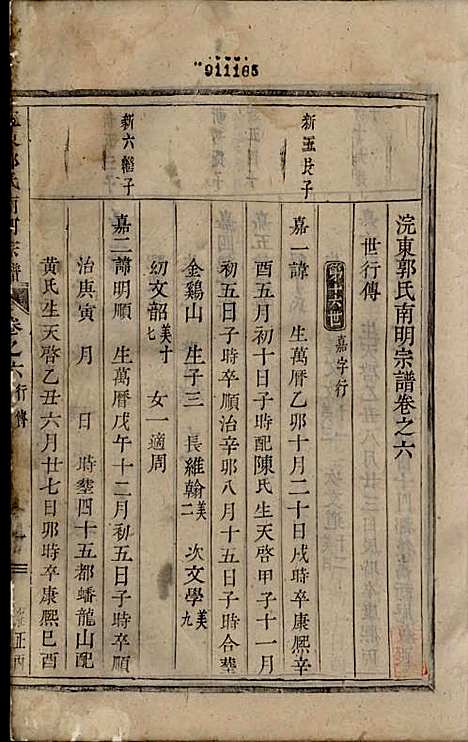 911165
浣東郭氏南明宗譜卷之六
世行傳
第十六世 嘉字行
新五長子
嘉一諱 生萬曆乙卯十月二十日戌時卒康熙辛
酉五月初十日子時配陳氏生天啓甲子十一月
初五日子時卒順治辛卯八月十五日子時合葬
金鷄山 生子三 長維翰美二 次文學美九
幼文韶美十七 女一適周
新六繼子
嘉二諱明順 生萬曆戊午十二月初五日子時卒順
治庚寅 月 日 時葬四十五都蟠龍山配
黃氏生天啓乙丑六月廿七日卯時卒康熙己酉
東郭氏南明宗譜 卷之六 行傳